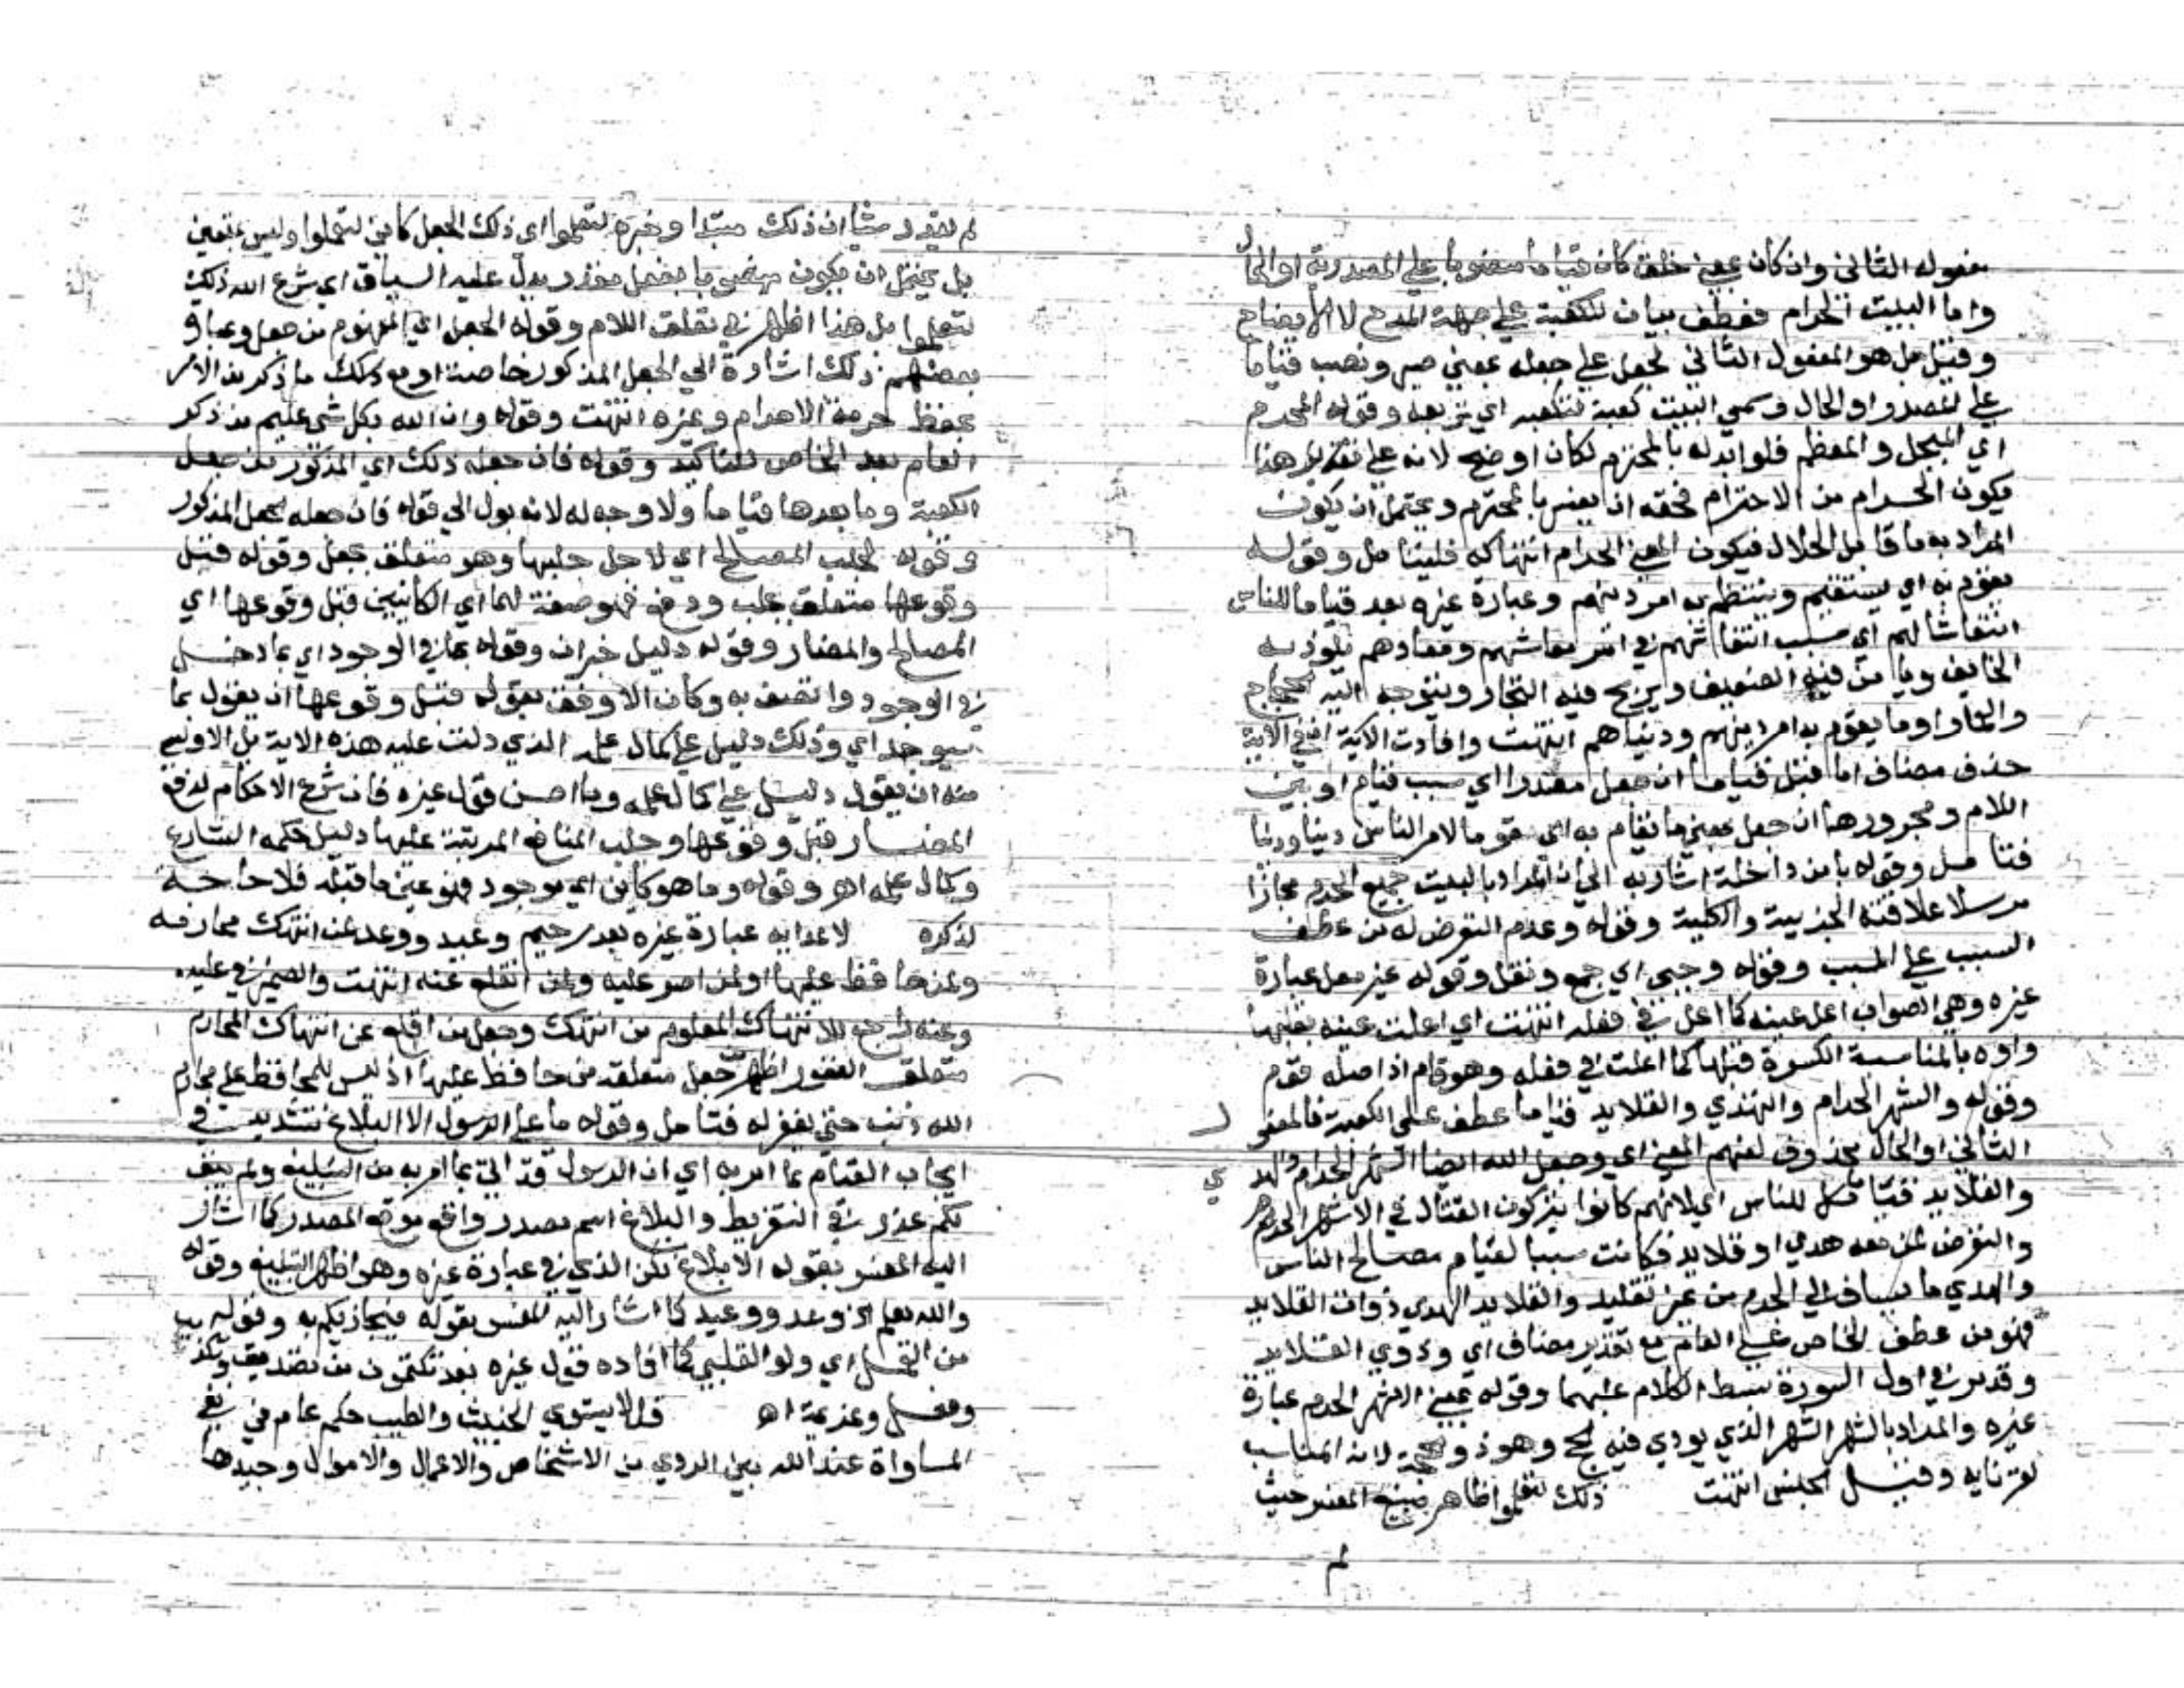 مفعوله الثاني وان كان بمعنى خلق كان قياما منصوبا على المصدرية او الحال
واما البيت الحرام فعطف بيان للكعبة على جهة المدح لا الايضاح
وقيل بل هو المفعول الثاني لجعل على جعله بمعنى صير ونصب قياما
على المصدر او الحال وسمي البيت كعبة لتكعبه اي تربعه وقوله المحرم
اي المبجل والمعظم فلو ابدله بالمحترم لكان اوضح لانه على تقدير هذا
يكون الحرام من الاحترام فحقه ان يفسر بالمحترم ويحتمل ان يكون
المراد به ما قابل الحلال فيكون المعنى الحرام انتهاكه فليتامل وقوله
يقوم به اي يستقيم وينتظم به امر دينهم وعبارة غيره بعد قياما للناس
انتعاشا لهم اي سبب انتعاشهم في امر معاشهم ومعادهم يلوذ به
الخايف ويامن فيه الضعيف ويربح فيه التجار ويتوجه اليه الحجاج
والعمار او ما يقوم به امر دينهم ودنياهم انتهت وافادت الاية ان في الاية
حذف مضاف اما قبل قياما ان جعل مقدرا اي سبب قيام او بين
اللام ومجرورها ان جعل بمعنى ما يقام به اي مقوما لامر الناس دينا ودنيا
فتامل وقوله يامن داخله اشار به الى ان المراد بالبيت جميع الحرم مجازا
مرسلا علاقته الجزيية والكلية وقوله وعدم التعرض له من عطف
السبب على المسبب وقوله وجبي اي جمع ونقل وقوله غير معل عبارة
غيره وهي الصواب اعل عينه كما اعل في فعله انتهت اي اعلت عينه بقلبها
واوه بالمناسبة الكسرة قبلها كما اعلت في فعله وهو قام اذ اصله قوم
وقوله والشهر الحرام والهدي والقلايد قياما عطف على الكعبة فالمفعول
الثاني او الحال محذوف لفهم المعنى اي وجعل الله ايضا الشهر الحرام والهدي
والقلايد قياما للناس اي لانهم كانوا يتركون القتال في الاشهر الحرم
والتعرض لمن معه هدي او قلايد فكانت سببا لقيام مصالح الناس
والهدي ما يساق الى الحرم من غير تقليد والقلايد الهدي ذوات القلايد
فهو من عطف الخاص على العام مع تقدير مضاف اي وذوي القلايد
وقد مر في اول السورة بسط الكلام عليهما وقوله بمعنى الاشهر الحرم عبارة
غيره والمراد بالشهر الشهر الذي يودي فيه الحج وهو ذو الحجة لانه المناسب
لقرنايه وقيل الجنس انتهت ذلك لتعلموا ظاهر صنيع المفسر حيث
لم
لم يقدر شيا ان ذلك مبتدا وخبره لتعلموا اي ذلك الجعل كاين لتعلموا وليس بمتعين
بل يحتمل ان يكون منصوبا بفعل مقدر يدل عليه السياق اي شرع الله ذلك
لتعلموا بل هذا اظهر في تعلق اللام وقوله الجعل اي المفهوم من جعل وعبارة
بعضهم ذلك اشارة الى الجعل المذكور خاصة او مع ذلك ما ذكر من الامر
بحفظ حرمة الاحرام وغيره انتهت وقوله وان الله بكل شي عليم من ذكر
العام بعد الخاص للتاكيد وقوله فان جعله ذلك اي المذكور من جعل
الكعبة وما بعدها قياما ولا وجه له لانه يول الى قوله فان جعله لجعل المذكور
وقوله لجلب المصالح اي لاجل جلبها وهو متعلق بجعل وقوله قبل
وقوعها متعلق بجلب ودفع فهو صفة لهما اي الكاينين قبل وقوعها اي
المصالح والمضار وقوله دليل خبر ان وقوله بما في الوجود اي بما دخل
في الوجود واتصف به وكان الاوفق بقوله قبل وقوعها ان يقول بما
سيوجد اي وذلك دليل على كمال علمه الذي دلت عليه هذه الاية بل الاولى
منه ان يقول دليل على كمال علمه وما احسن قول غيره فان شرع الاحكام لدفع
المضار قبل وقوعها وجلب المنافع المرتبة عليها دليل حكمة الشارع
وكمال علمه اهـ وقوله وما هو كاين اي موجود فهو عين ما قبله فلا حاجة
لذكره لاعدايه عبارة غيره بعد رحيم وعيد ووعد لمن انتهك محارمه
ولمن حافظ عليها او لمن اصر عليه ولمن انقلع عنه انتهت والضمير في عليه
وعنه راجع للانتهاك المعلوم من انتهك وجعل من اقلع عن انتهاك المحارم
متعلق الغفور اظهر جعل متعلقه من حافظ عليها اذ ليس للمحافظ على محارم
الله ذنب حتى يغفر له فتامل وقوله ما على الرسول الا البلاغ تشديد في
ايجاب القيام بما امر به اي ان الرسول قد اتى بما امر به من التبليغ ولم يبق
لكم عذر في التفريط والبلاغ اسم مصدر واقع موقع المصدر كما اشار
اليه المفسر بقوله الابلاغ لكن الذي في عبارة غيره وهو اظهر التبليغ وقوله
والله يعلم الخ وعد ووعيد كما اشار اليه المفسر بقوله فيجازيكم به وقوله
من العمل اي ولو القلبي كما افاده قول غيره بعد تكتمون من تصديق وتكذيب
وفعل وعزيمة اهـ قل لا يستوي الخبيث والطيب حكم عام في نفي
المساواة عند الله بين الردي من الاشخاص والاعمال والاموال وجيدها